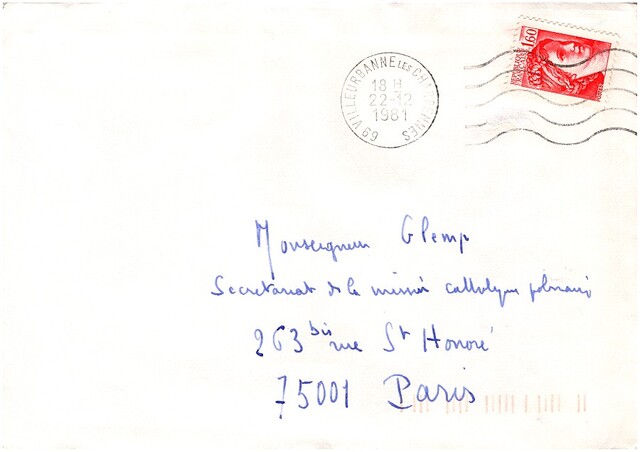 69 VILLEURBANNE LES CHARPENNES
18 H
22-12
1981
1,60
Monseigneur Glemp
Secretariat de la mission catholique polonaise
263 bis rue St Honoré
75001 Paris